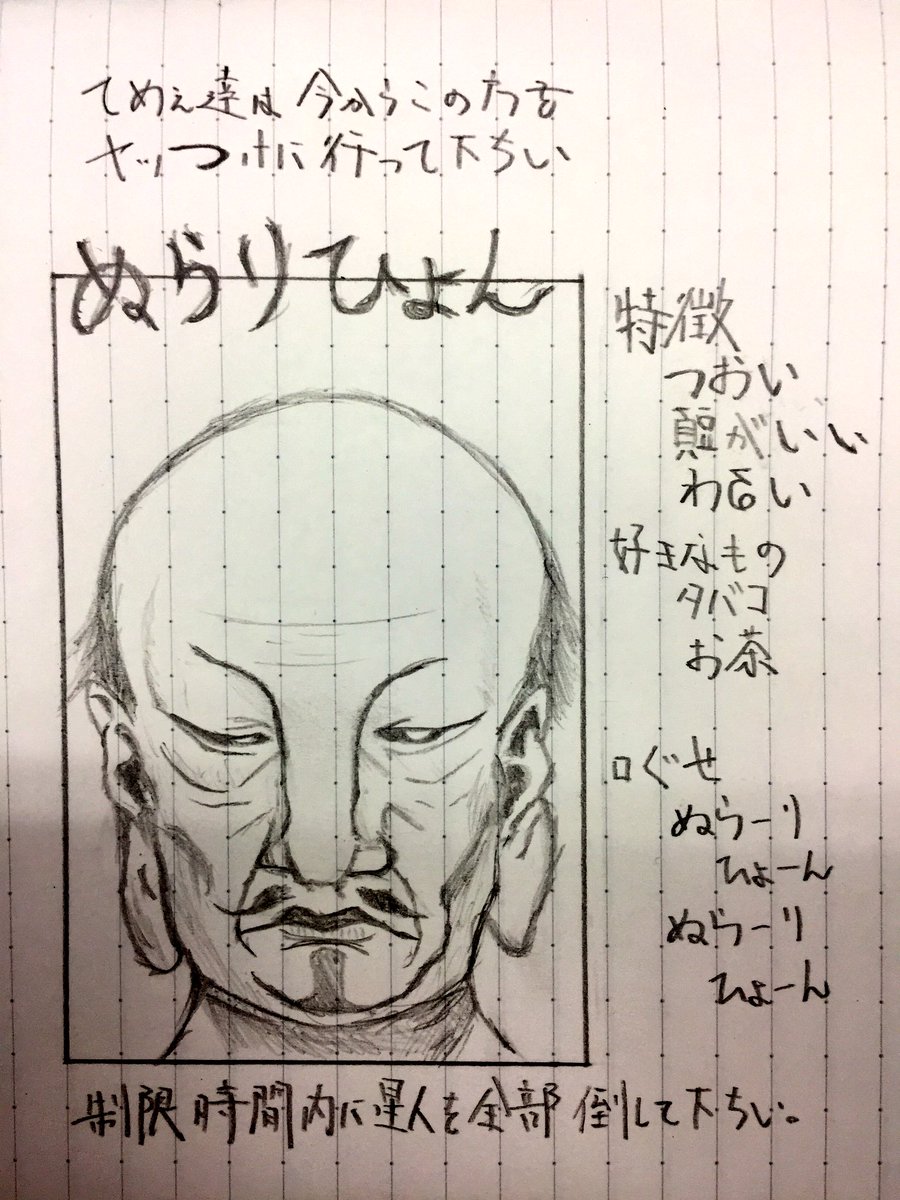 てめえ達は今からこの方を
ヤッつけに行って下ちい
ぬらりひょん
特徴
つおい
頭がいい
わるい
好きなもの
タバコ
お茶
口ぐせ
ぬらーり
ひょーん
ぬらーり
ひょーん
制限時間内に星人を全部倒して下ちい。